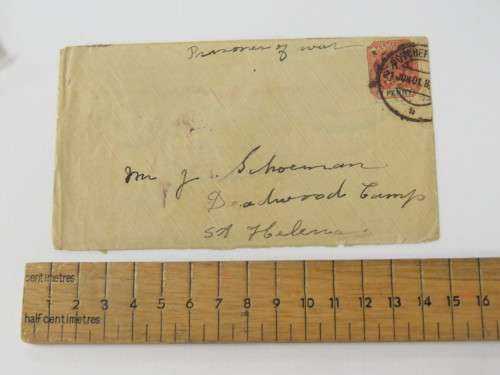 Prisoner of war
PENNY
21 JUN 01
Mr J. Schoeman
Deadwood Camp
St Helena
centimetres
1 2 3 4 5 6 7 8 9 10 11 12 13 14 15 16
half centimetres